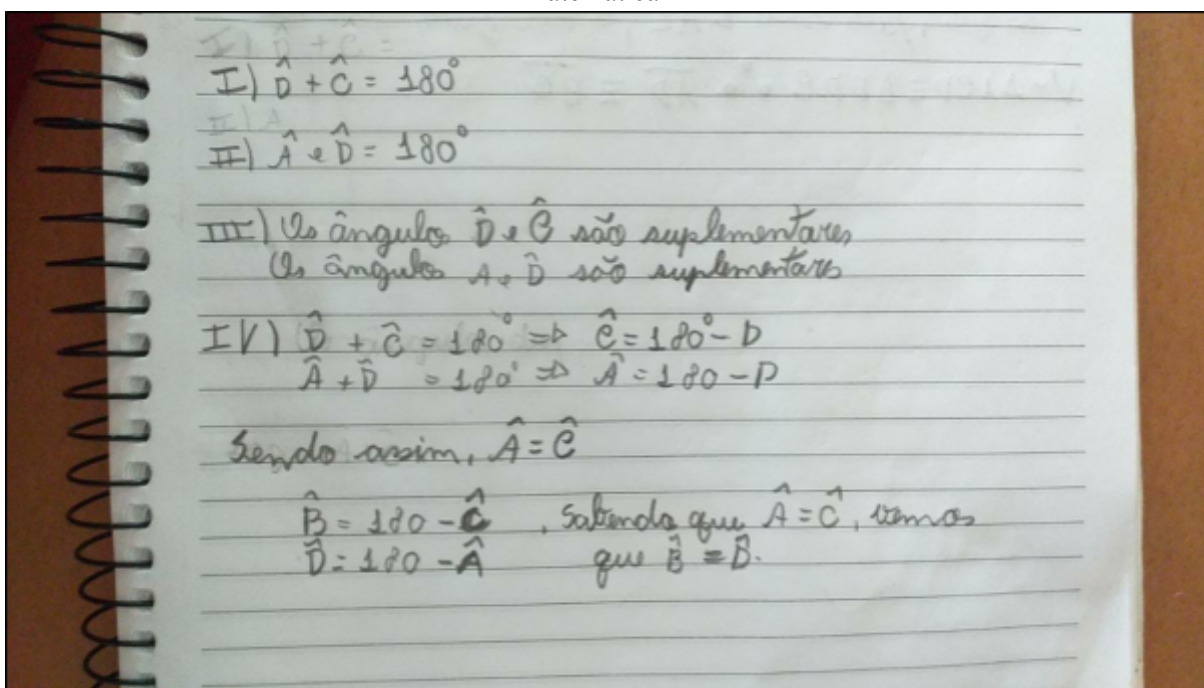 I) D̂ + Ĉ = 180°
II) Â e D̂ = 180°
III) Os ângulos D̂ e Ĉ são suplementares
Os ângulos A e D̂ são suplementares
IV) D̂ + Ĉ = 180° => Ĉ = 180° - D
Â + D̂ = 180° => Â = 180 - D
Sendo assim, Â = Ĉ
B̂ = 180 - Ĉ , Sabendo que Â = Ĉ, vemos
D̂ = 180 - Â que B̂ = D̂.